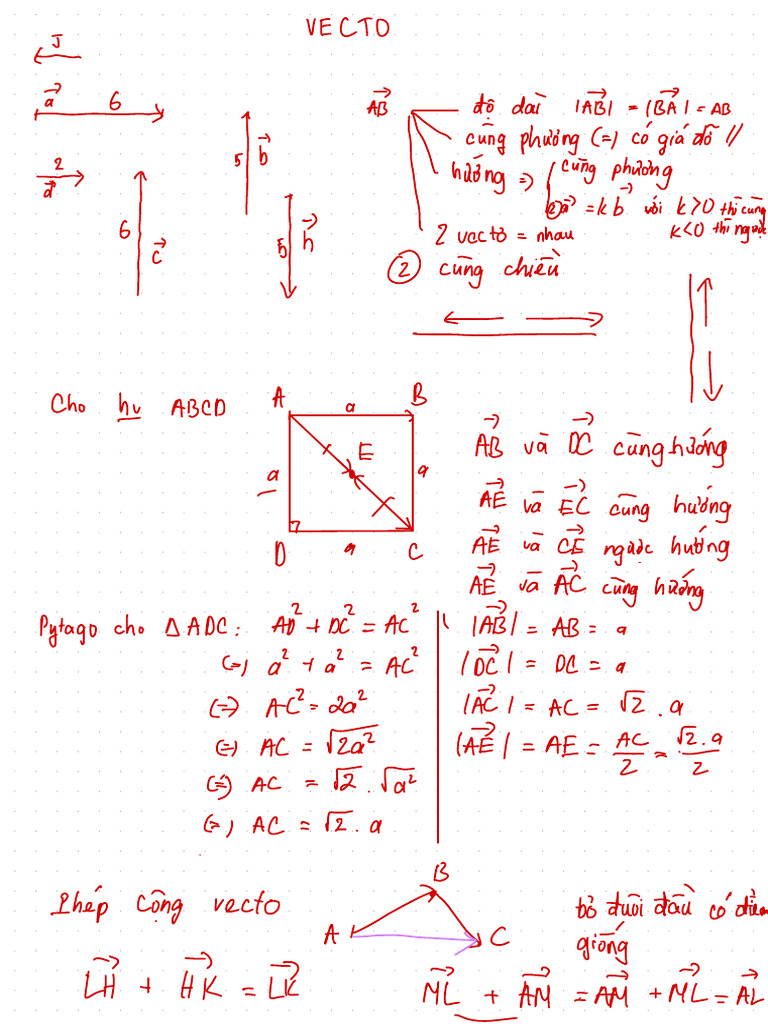 VECTO
J
a⃗ 6
2
d⃗
6 c⃗
5 b⃗
5 h⃗
AB⃗
độ dài |AB⃗| = |BA⃗| = AB
cùng phương (=) có giá đỡ //
hướng => cùng phương
② a⃗ = k b⃗ với k>0 thì cùng
k<0 thì ngược
2 vectơ = nhau
② cùng chiều
Cho hv ABCD
A a B
a E a
D a C
AB⃗ và DC⃗ cùng hướng
AE⃗ và EC⃗ cùng hướng
AE⃗ và CE⃗ ngược hướng
AE⃗ và AC⃗ cùng hướng
Pytago cho ΔADC: AD² + DC² = AC²
(=) a² + a² = AC²
(=) AC² = 2a²
(=) AC = √2a²
(=) AC = √2 . √a²
(=) AC = √2 . a
|AB⃗| = AB = a
|DC⃗| = DC = a
|AC⃗| = AC = √2 . a
|AE⃗| = AE = AC/2 = √2.a/2
Phép cộng vectơ
B
A C
bỏ đuôi đầu có điểm
giống
LH⃗ + HK⃗ = LK⃗
ML⃗ + AM⃗ = AM⃗ + ML⃗ = AL